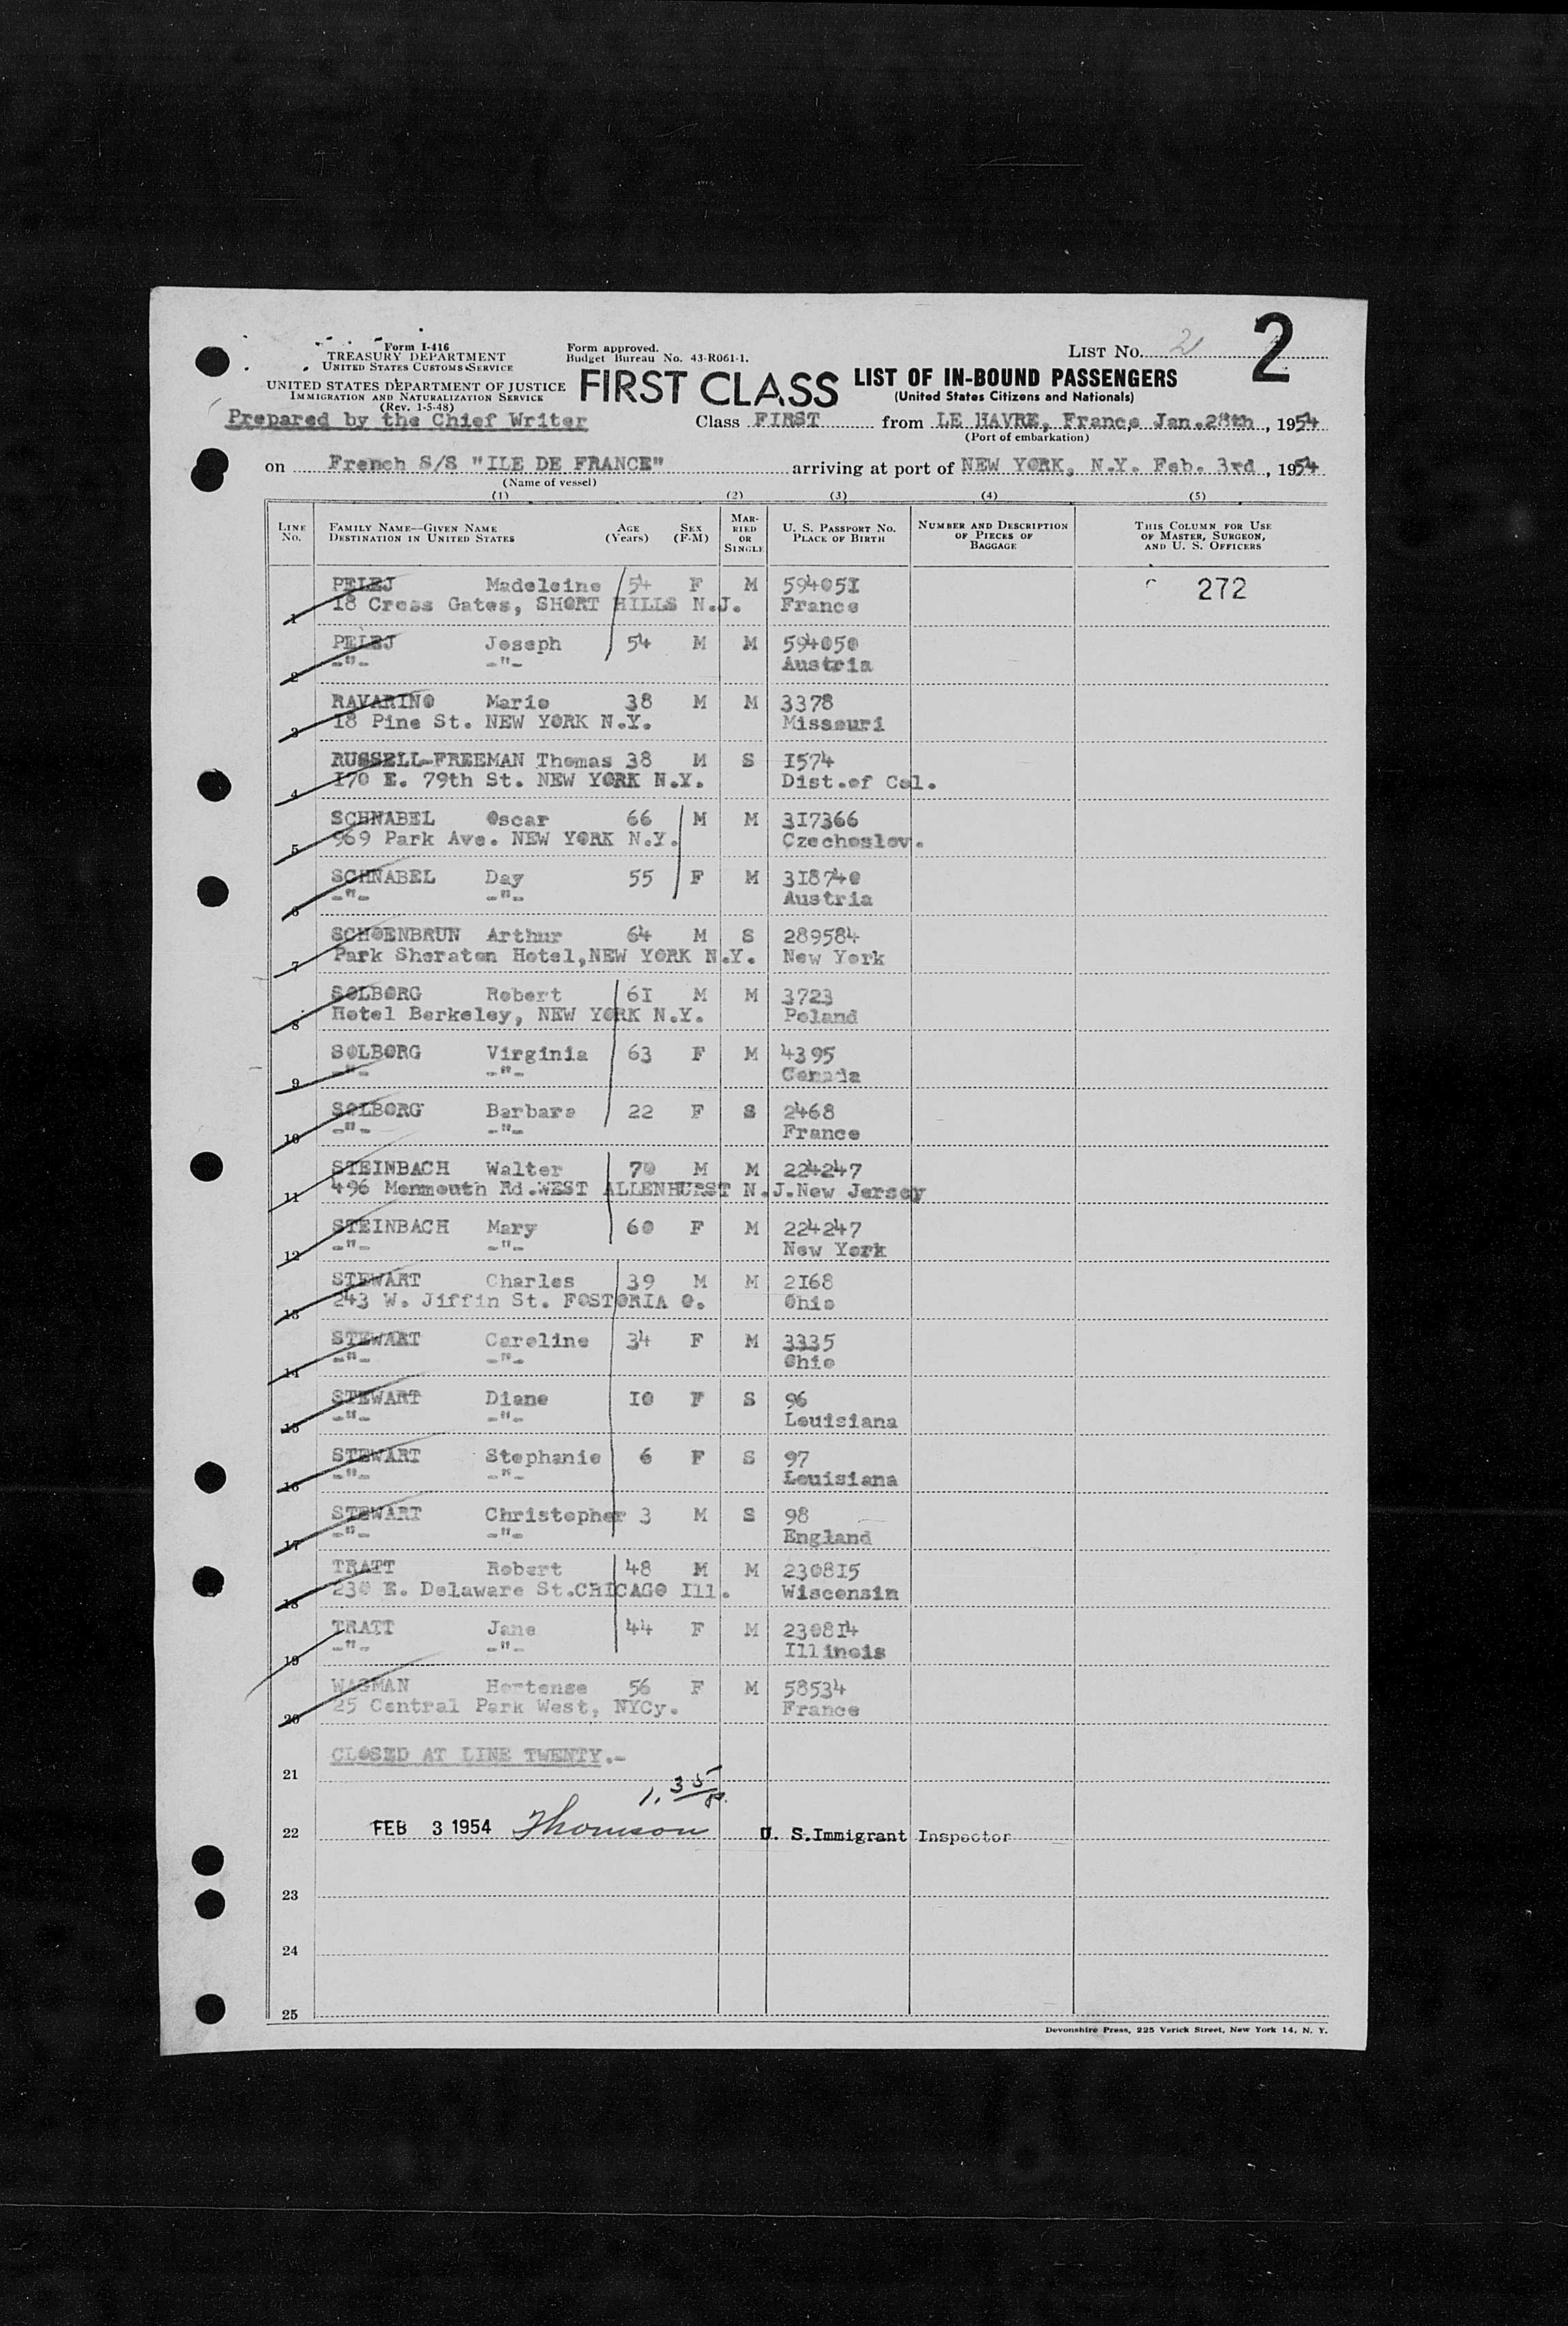 Form I-416
TREASURY DEPARTMENT
UNITED STATES CUSTOMS SERVICE
UNITED STATES DEPARTMENT OF JUSTICE
IMMIGRATION AND NATURALIZATION SERVICE
(Rev. 1-5-48)
Form approved.
Budget Bureau No. 43-R061-1.
LIST No. 2 2
FIRST CLASS LIST OF IN-BOUND PASSENGERS
(United States Citizens and Nationals)
Prepared by the Chief Writer
Class FIRST from LE HAVRE, France, Jan.28th, 1954
(Port of embarkation)
on French S/S "ILE DE FRANCE" arriving at port of NEW YORK, N.Y. Feb. 3rd, 1954
(Name of vessel)
(1) (2) (3) (4) (5)
LINE No. FAMILY NAME—GIVEN NAME DESTINATION IN UNITED STATES AGE (Years) SEX (F-M) MARRIED OR SINGLE U. S. PASSPORT NO. PLACE OF BIRTH NUMBER AND DESCRIPTION OF PIECES OF BAGGAGE THIS COLUMN FOR USE OF MASTER, SURGEON, AND U. S. OFFICERS
PELEJ Madeleine 54 F M 594051 272
1 18 Cross Gates, SHORT HILLS N.J. France
PELEJ Joseph 54 M M 594050
2 -"- -"- Austria
RAVARINO Mario 38 M M 3378
3 18 Pine St. NEW YORK N.Y. Missouri
RUSSELL-FREEMAN Thomas 38 M S 1574
4 170 E. 79th St. NEW YORK N.Y. Dist.of Col.
SCHNABEL Oscar 66 M M 317366
5 969 Park Ave. NEW YORK N.Y. Czechoslov.
SCHNABEL Day 55 F M 318740
6 -"- -"- Austria
SCHOENBRUN Arthur 64 M S 289584
7 Park Sheraton Hotel,NEW YORK N.Y. New York
SOLBORG Robert 61 M M 3723
8 Hotel Berkeley, NEW YORK N.Y. Poland
SOLBORG Virginia 63 F M 4395
9 -"- -"- Canada
SOLBORG Barbara 22 F S 2468
10 -"- -"- France
STEINBACH Walter 70 M M 224247
11 496 Monmouth Rd.WEST ALLENHURST N.J.New Jersey
STEINBACH Mary 60 F M 224247
12 -"- -"- New York
STEWART Charles 39 M M 2168
13 243 W. Jiffin St. FOSTORIA O. Ohio
STEWART Caroline 34 F M 3335
14 -"- -"- Ohio
STEWART Diane 10 F S 96
15 -"- -"- Louisiana
STEWART Stephanie 6 F S 97
16 -"- -"- Louisiana
STEWART Christopher 3 M S 98
17 -"- -"- England
TRATT Robert 48 M M 230815
18 230 E. Delaware St.CHICAGO Ill. Wisconsin
TRATT Jane 44 F M 230814
19 -"- -"- Illinois
WAGMAN Hortense 56 F M 58534
20 25 Central Park West, NYCy. France
CLOSED AT LINE TWENTY.-
21
1.35
22 FEB 3 1954 Thomson U. S. Immigrant Inspector
23
24
25
Devonshire Press, 225 Varick Street, New York 14, N. Y.